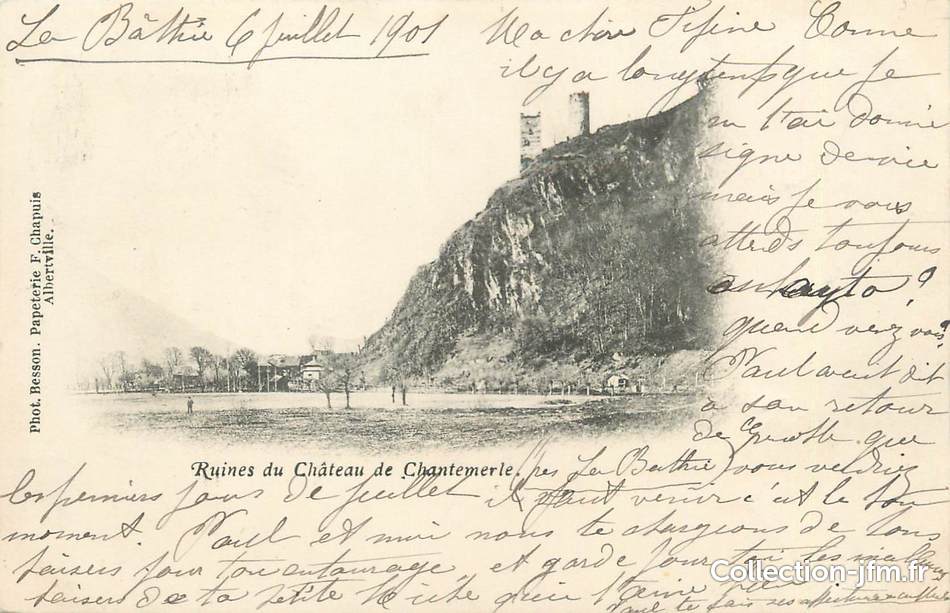 La Bâthie 6 juillet 1901
Ma chère Fifine Comme
il y a longtemps que je
n t'ai donné
signe de vie
mais je vous
attends toujours
quand
Paul avait dit
à son retour
de que
Phot. Besson. Papeterie F. Chapuis
Albertville.
Ruines du Château de Chantemerle.
(près La Bathie) vous veniez
les premiers jours de juillet il faut venir c'est le bon
moment. Paul et moi nous te chargeons de tous
baisers pour ton entourage et garde pour toi les
baisers de ta petite qui t'aime
Paul te fais ses
Collection-jfm.fr